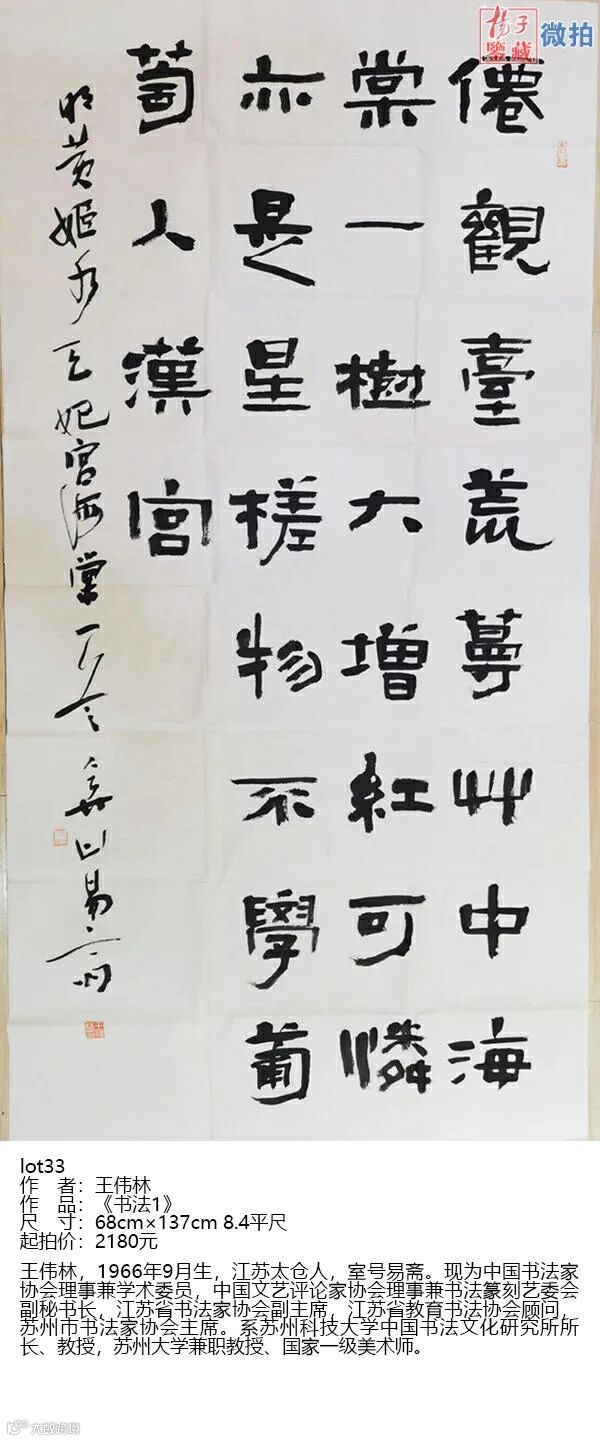 楊子
鑒藏
微拍
僊觀臺荒蔓艸中海
棠一樹大增紅可憐
亦是星槎物不學葡
萄入漢宮
明黃姬水天妃宮海棠一首 弇山易齋
lot33
作 者：王伟林
作 品：《书法1》
尺 寸：68cm×137cm 8.4平尺
起拍价：2180元
王伟林，1966年9月生，江苏太仓人，室号易斋。现为中国书法家
协会理事兼学术委员，中国文艺评论家协会理事兼书法篆刻艺委会
副秘书长，江苏省书法家协会副主席，江苏省教育书法协会顾问，
苏州市书法家协会主席。系苏州科技大学中国书法文化研究所所
长、教授，苏州大学兼职教授、国家一级美术师。
大数跨境